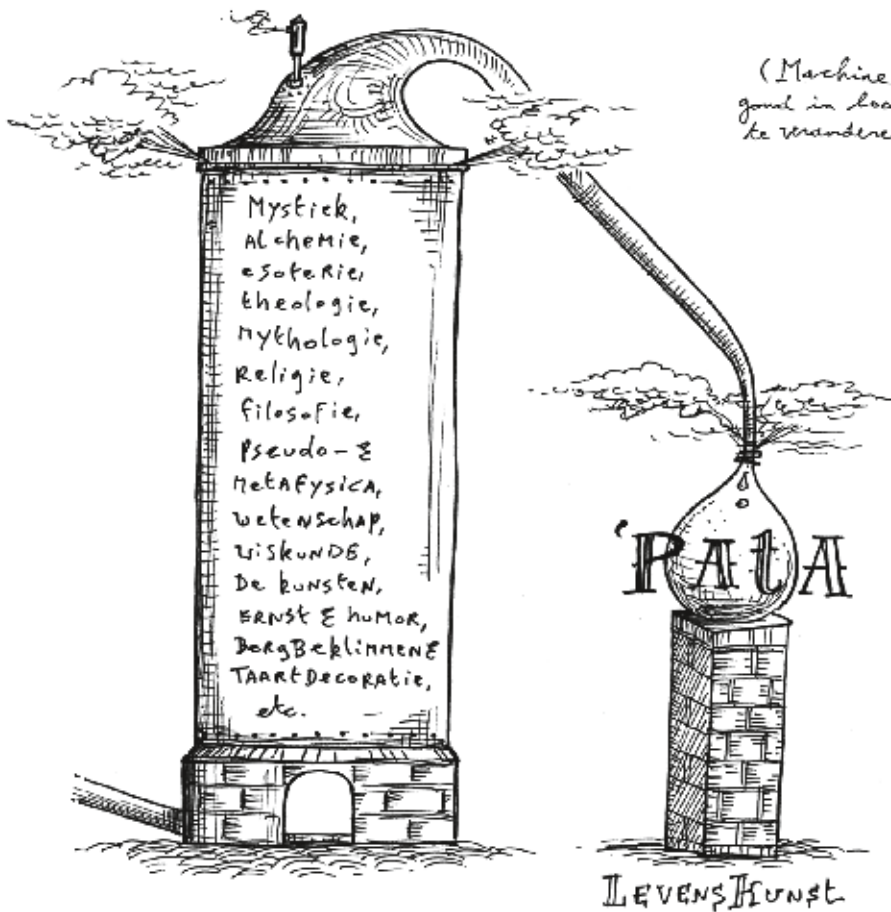 (Machine
goud in
te verandere
Mystiek,
Alchemie,
esoterie,
theologie,
Mythologie,
Religie,
filosofie,
Pseudo- &
Metafysica,
wetenschap,
wiskunde,
De kunsten,
Ernst & humor,
BergBeklimmen &
TaartDecoratie,
etc.
'PAtA
LevensKunst